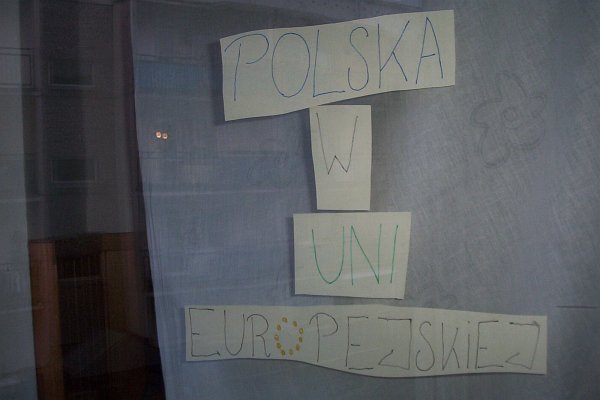 POLSKA
W
UNI
EUROPEJSKiEJ